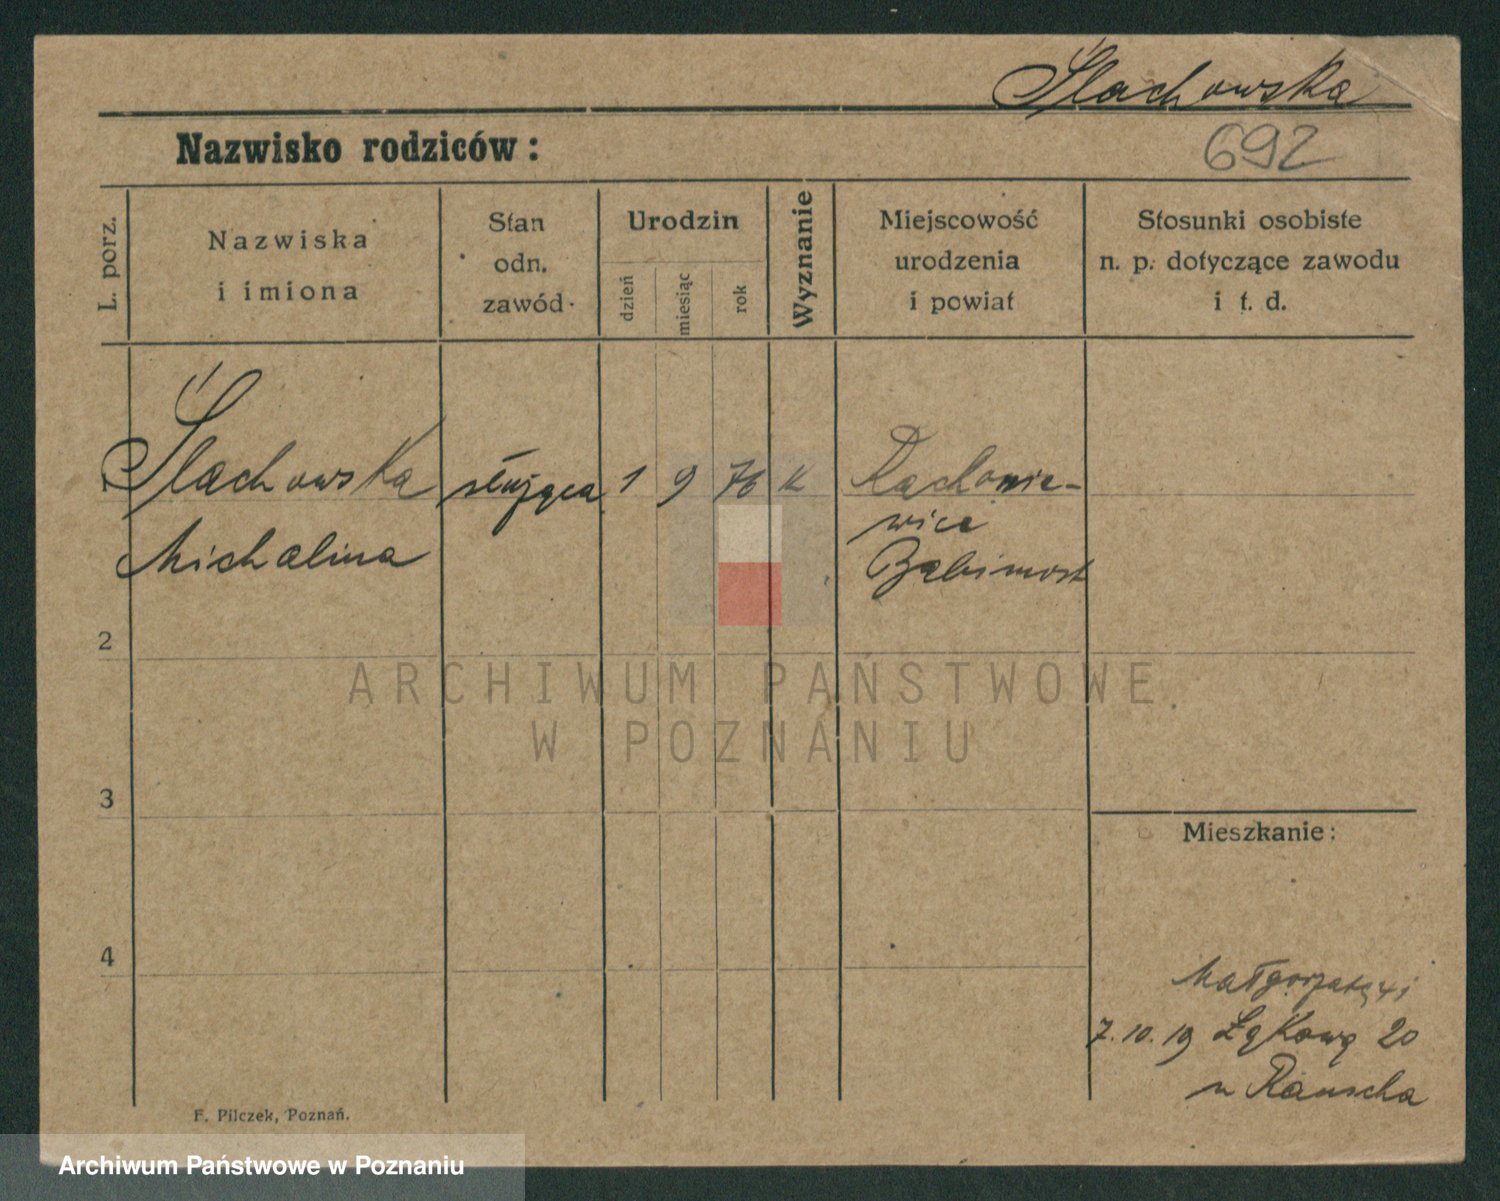 Ślachowska
692
Nazwisko rodziców:
L. porz.
Nazwiska
i imiona
Stan
odn.
zawód
Urodzin
dzień
miesiąc
rok
Wyznanie
Miejscowość
urodzenia
i powiat
Stosunki osobiste
n. p. dotyczące zawodu
i t. d.
1
Ślachowska służąca 1 9 76 K
Michalina
wice
Babimost
2
ARCHIWUM PAŃSTWOWE
W POZNANIU
3
Mieszkanie:
4
7.10.19 Łąkowa 20
u Rauscha
F. Pilczek, Poznań.
Archiwum Państwowe w Poznaniu